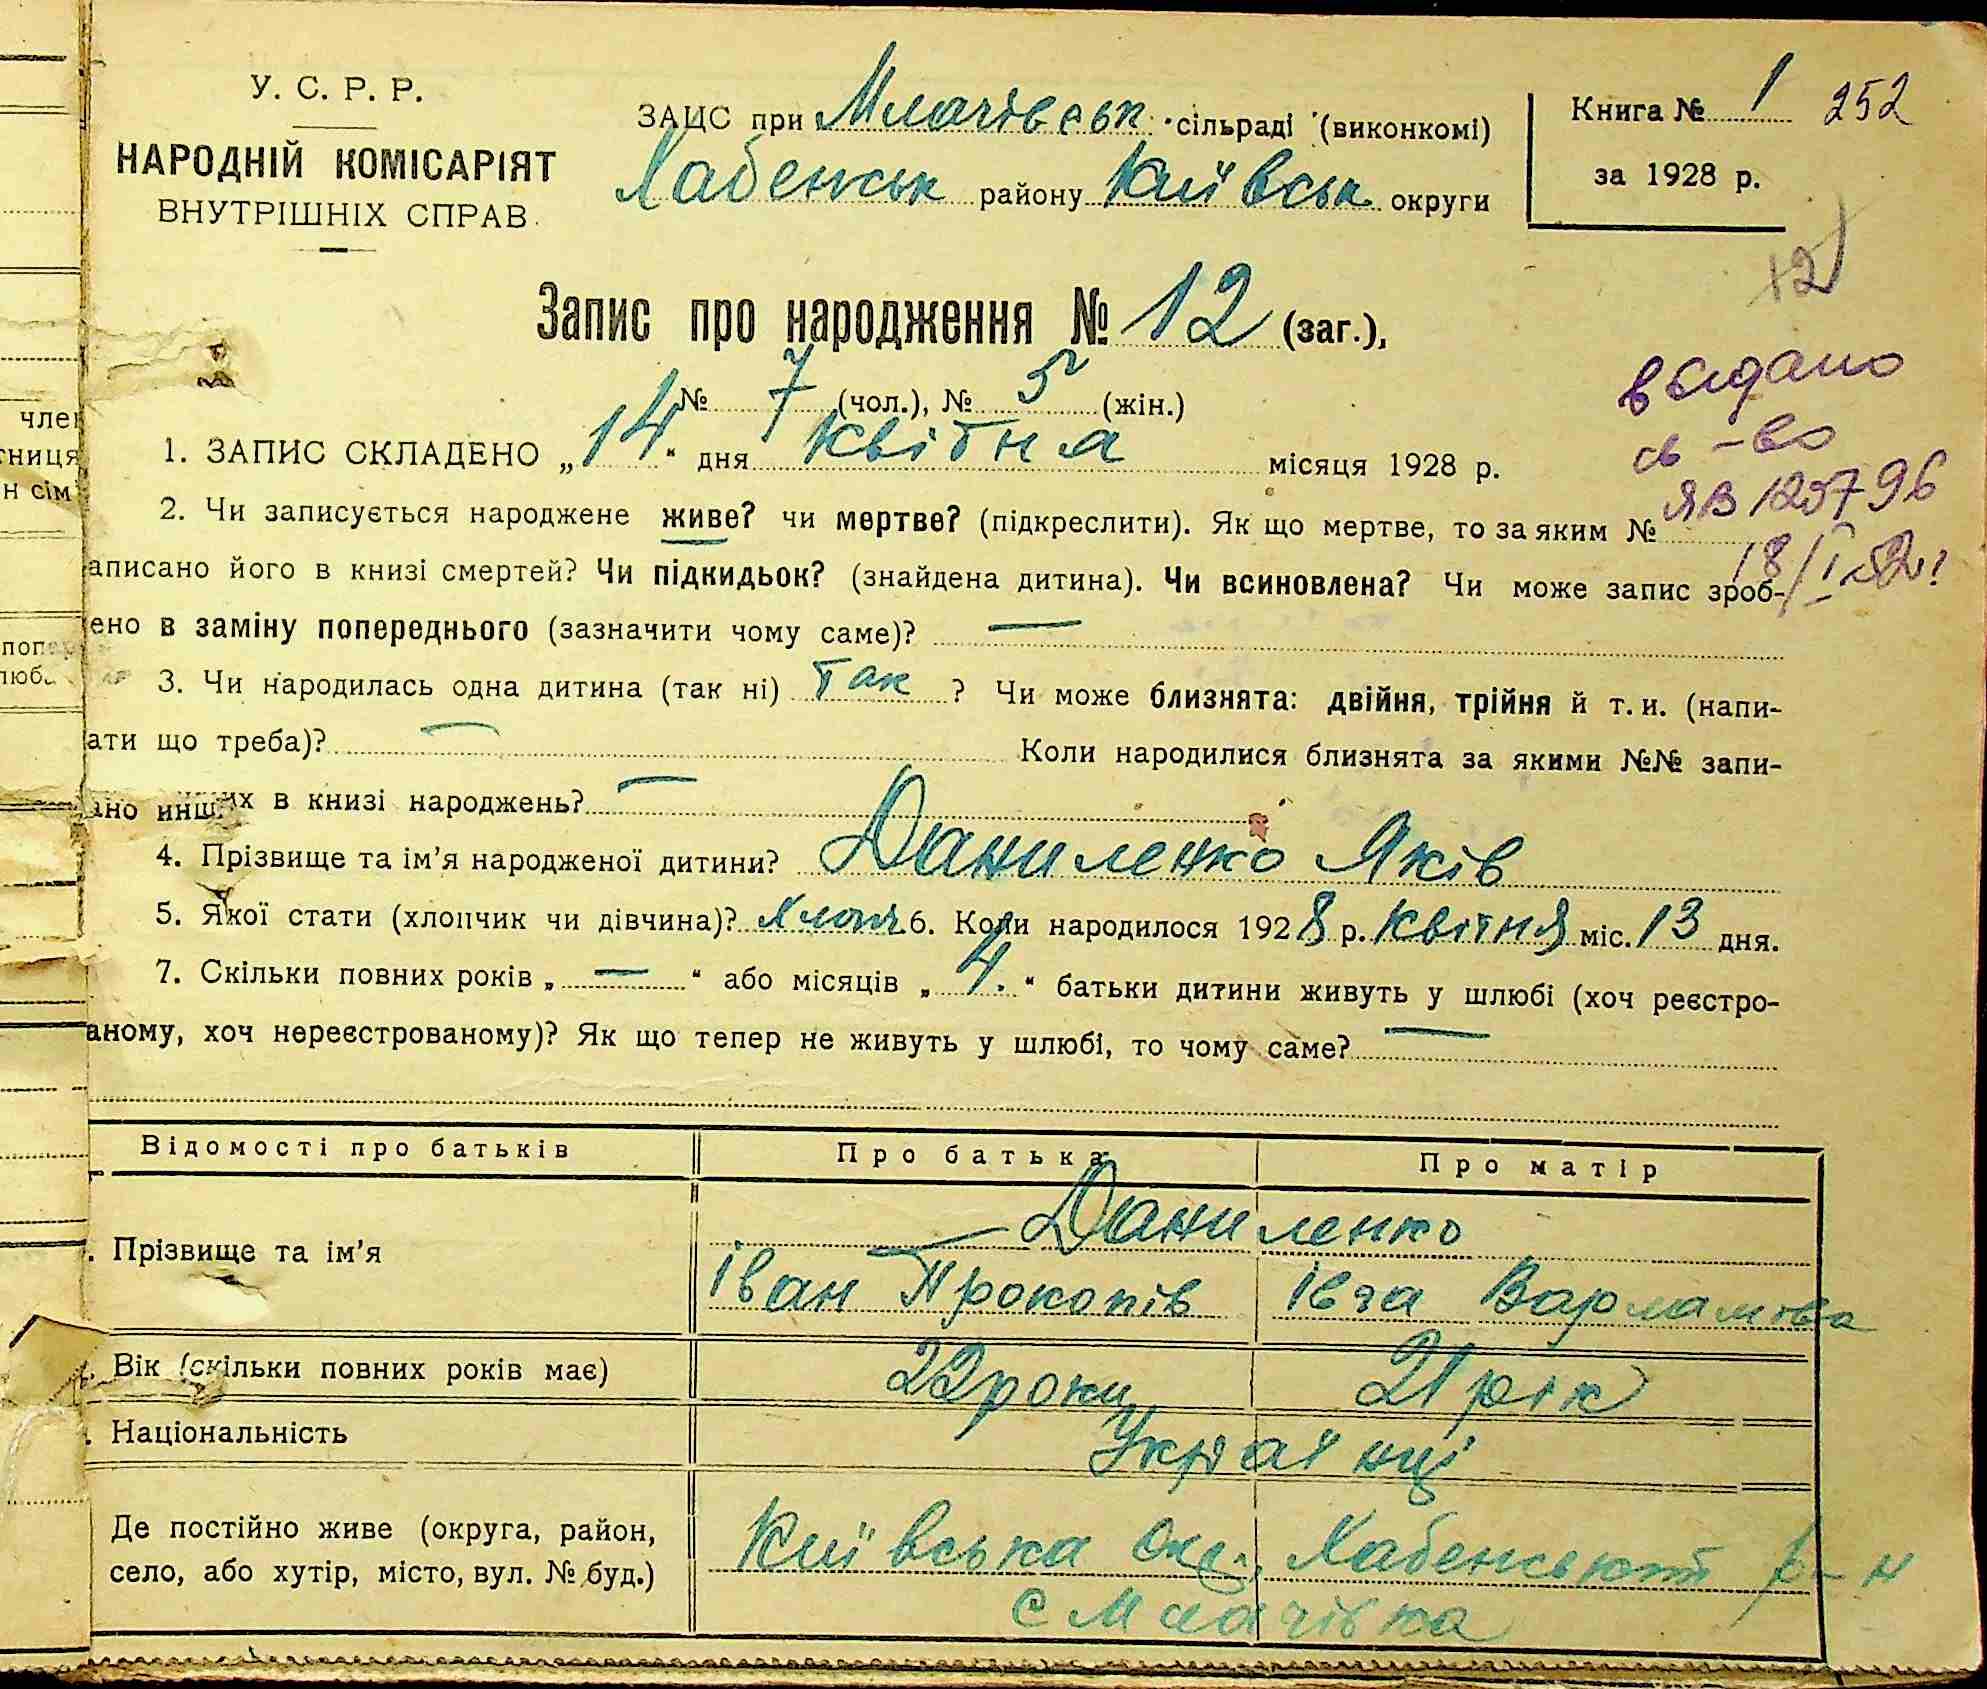 У. С. Р. Р.
НАРОДНІЙ КОМІСАРІЯТ
ВНУТРІШНІХ СПРАВ
ЗАЦС при Млачівськ. сільраді (виконкомі)
Хабенськ району Київськ. округи
Книга № 1 252
за 1928 р.
12
Запис про народження № 12 (заг.),
№ 7 (чол.), № 5 (жін.)
видано
св-во
ЯВ 125796
18/I 52г
1. ЗАПИС СКЛАДЕНО „14“ дня квітня місяця 1928 р.
2. Чи записується народжене живе? чи мертве? (підкреслити). Як що мертве, то за яким №
аписано його в книзі смертей? Чи підкидьок? (знайдена дитина). Чи всиновлена? Чи може запис зроб-
ено в заміну попереднього (зазначити чому саме)? —
3. Чи народилась одна дитина (так ні) так ? Чи може близнята: двійня, трійня й т. и. (напи-
ати що треба)? — Коли народилися близнята за якими №№ запи-
ано инших в книзі народжень? —
4. Прізвище та ім’я народженої дитини? Даниленко Яків
5. Якої стати (хлопчик чи дівчина)? Хлопч 6. Коли народилося 1928 р. квітня міс. 13 дня.
7. Скільки повних років „ — “ або місяців „ 4. “ батьки дитини живуть у шлюбі (хоч реєстро-
аному, хоч нереєстрованому)? Як що тепер не живуть у шлюбі, то чому саме? —
Відомості про батьків Про батька Про матір
. Прізвище та ім’я
Даниленко
Іван Прокопів Івга Варламова
. Вік (скільки повних років має) 22 роки 21 рік
. Національність Українці
Де постійно живе (округа, район,
село, або хутір, місто, вул. № буд.)
Київська Окр., Хабенський р-н
с Млачівка
член
тниця
н сім’
попер
люб